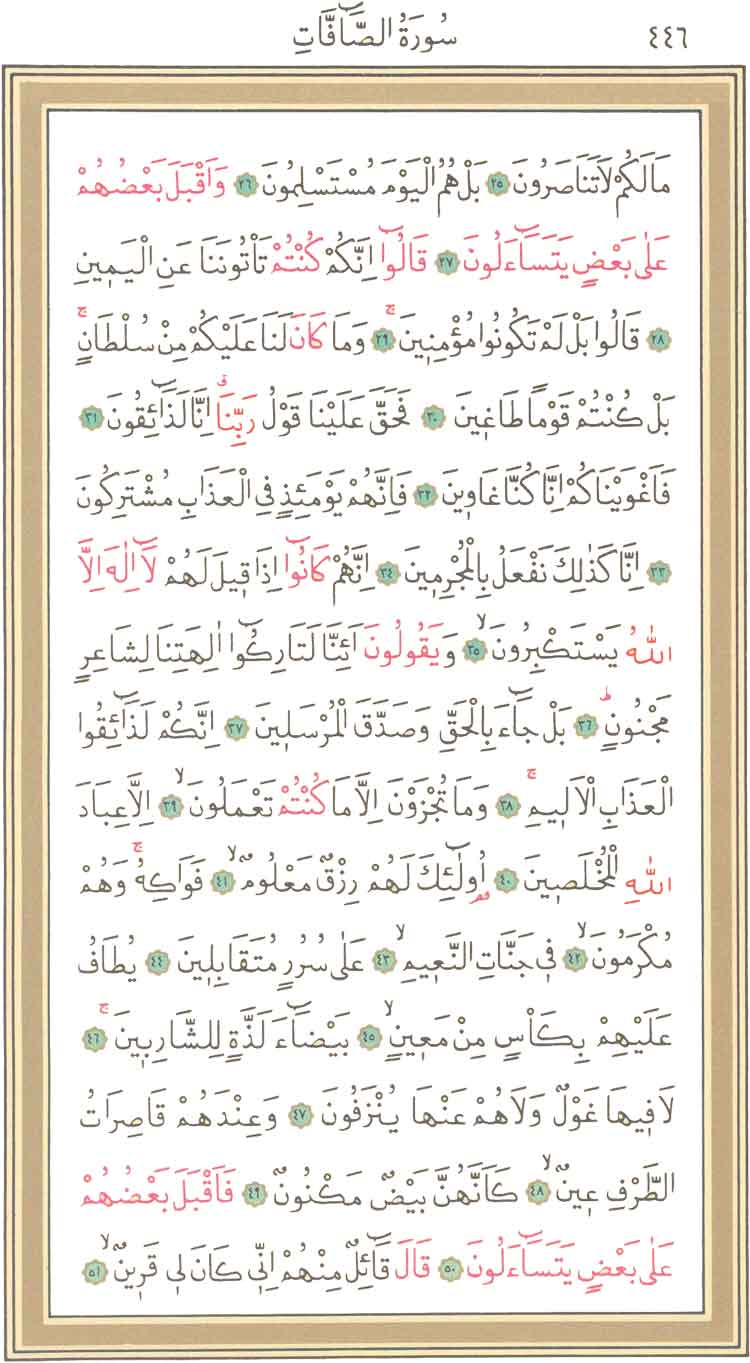 ٤٤٦ سُورَةُ الصَّٓافَّاتِ
مَا لَكُمْ لَا تَنَاصَرُونَ ﴿٢٥﴾ بَلْ هُمُ الْيَوْمَ مُسْتَسْلِمُونَ ﴿٢٦﴾ وَاَقْبَلَ بَعْضُهُمْ
عَلٰى بَعْضٍ يَتَسَٓاءَلُونَ ﴿٢٧﴾ قَالُٓوا اِنَّكُمْ كُنْتُمْ تَأْتُونَنَا عَنِ الْيَم۪ينِ
﴿٢٨﴾ قَالُوا بَلْ لَمْ تَكُونُوا مُؤْمِن۪ينَۚ ﴿٢٩﴾ وَمَا كَانَ لَنَا عَلَيْكُمْ مِنْ سُلْطَانٍۚ
بَلْ كُنْتُمْ قَوْمًا طَاغ۪ينَ ﴿٣٠﴾ فَحَقَّ عَلَيْنَا قَوْلُ رَبِّنَاۗ اِنَّا لَذَٓائِقُونَ ﴿٣١﴾
فَاَغْوَيْنَاكُمْ اِنَّا كُنَّا غَاو۪ينَ ﴿٣٢﴾ فَاِنَّهُمْ يَوْمَئِذٍ فِي الْعَذَابِ مُشْتَرِكُونَ
﴿٣٣﴾ اِنَّا كَذٰلِكَ نَفْعَلُ بِالْمُجْرِم۪ينَ ﴿٣٤﴾ اِنَّهُمْ كَانُٓوا اِذَا ق۪يلَ لَهُمْ لَٓا اِلٰهَ اِلَّا
اللّٰهُ يَسْتَكْبِرُونَۙ ﴿٣٥﴾ وَيَقُولُونَ اَئِنَّا لَتَارِكُٓوا اٰلِهَتِنَا لِشَاعِرٍ
مَجْنُونٍۜ ﴿٣٦﴾ بَلْ جَٓاءَ بِالْحَقِّ وَصَدَّقَ الْمُرْسَل۪ينَ ﴿٣٧﴾ اِنَّكُمْ لَذَٓائِقُوا
الْعَذَابِ الْاَل۪يمِۚ ﴿٣٨﴾ وَمَا تُجْزَوْنَ اِلَّا مَا كُنْتُمْ تَعْمَلُونَۙ ﴿٣٩﴾ اِلَّا عِبَادَ
اللّٰهِ الْمُخْلَص۪ينَ ﴿٤٠﴾ اُو۬لٰٓئِكَ لَهُمْ رِزْقٌ مَعْلُومٌۙ ﴿٤١﴾ فَوَاكِهُۚ وَهُمْ
مُكْرَمُونَۙ ﴿٤٢﴾ ف۪ي جَنَّاتِ النَّع۪يمِۙ ﴿٤٣﴾ عَلٰى سُرُرٍ مُتَقَابِل۪ينَ ﴿٤٤﴾ يُطَافُ
عَلَيْهِمْ بِكَأْسٍ مِنْ مَع۪ينٍۙ ﴿٤٥﴾ بَيْضَٓاءَ لَذَّةٍ لِلشَّارِب۪ينَۚ ﴿٤٦﴾
لَا ف۪يهَا غَوْلٌ وَلَا هُمْ عَنْهَا يُنْزَفُونَ ﴿٤٧﴾ وَعِنْدَهُمْ قَاصِرَاتُ
الطَّرْفِ ع۪ينٌۙ ﴿٤٨﴾ كَاَنَّهُنَّ بَيْضٌ مَكْنُونٌ ﴿٤٩﴾ فَاَقْبَلَ بَعْضُهُمْ
عَلٰى بَعْضٍ يَتَسَٓاءَلُونَ ﴿٥٠﴾ قَالَ قَٓائِلٌ مِنْهُمْ اِنّ۪ي كَانَ ل۪ي قَر۪ينٌۙ ﴿٥١﴾